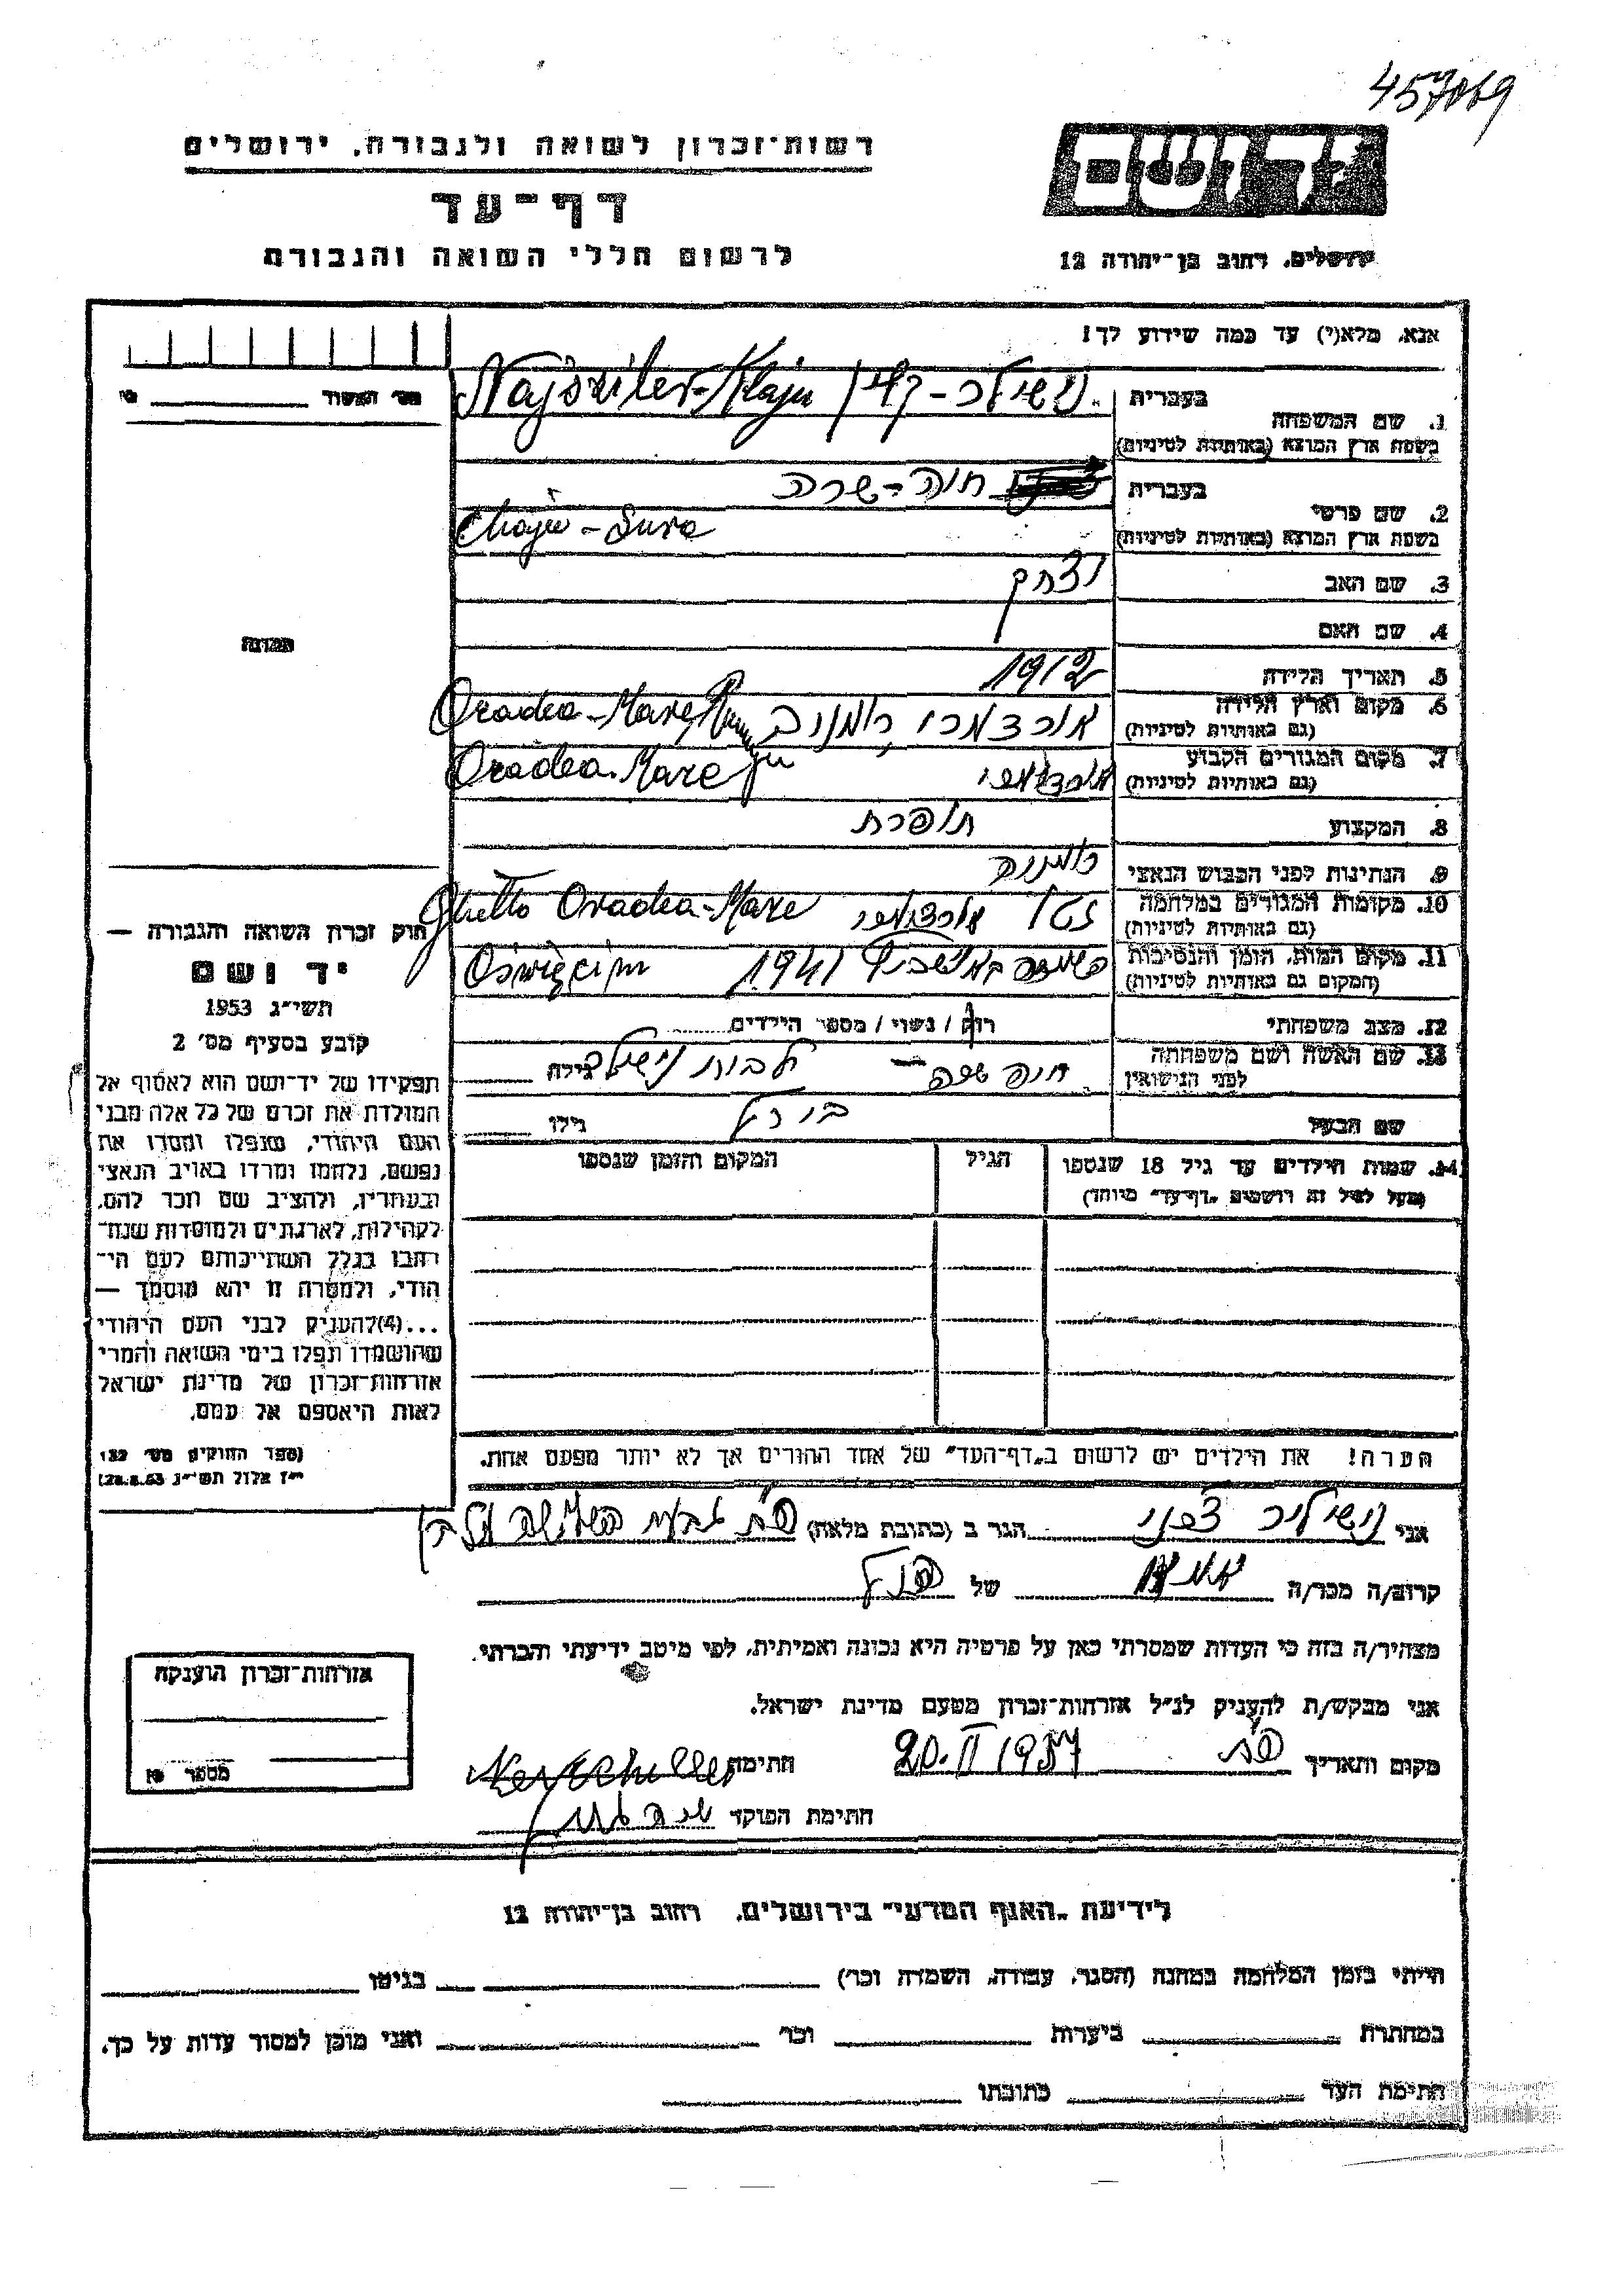 457069
רשות־זכרון לשואה ולגבורה, ירושלים
דף־עד
לרשום חללי השואה והגבורה
יד ושם
ירושלים, רחוב בן־יהודה 12
אנא, מלא(י) עד כמה שידוע לך!
1. שם המשפחה בעברית
בשפת ארץ המוצא (באותיות לטיניות)
Najsziler-Klajn
2. שם פרטי בעברית חוה-שרה
בשפת ארץ המוצא (באותיות לטיניות) Chaja-Sura
3. שם האב יצחק
4. שם האם
5. תאריך הלידה 1912
6. מקום וארץ הלידה
(גם באותיות לטיניות) Oradea-Mare
7. מקום המגורים הקבוע
(גם באותיות לטיניות) Oradea-Mare
8. המקצוע תופרת
9. הנתינות לפני הכבוש הנאצי רומניה
10. מקומות המגורים במלחמה
(גם באותיות לטיניות) גטו Ghetto Oradea-Mare
11. מקום המות, הזמן והנסיבות
(המקום גם באותיות לטיניות) 1941 Oświęcim
12. מצב משפחתי רווק / נשוי / מספר הילדים
13. שם האשה ושם משפחתה
לפני הנישואין חוה שרה גילה
שם הבעל גילו
14. שמות הילדים עד גיל 18 שנספו הגיל המקום והזמן שנספו
(מעל לגיל זה רושמים "דף־עד" מיוחד)
הערה! את הילדים יש לרשום ב"דף־העד" של אחד ההורים אך לא יותר מפעם אחת.
אני הגר ב (כתובת מלאה)
קרוב/ה מכר/ה של
מצהיר/ה בזה כי העדות שמסרתי כאן על פרטיה היא נכונה ואמיתית, לפי מיטב ידיעתי והכרתי.
אני מבקש/ת להעניק לנ"ל אזרחות־זכרון מטעם מדינת ישראל.
מקום ותאריך 20.II 1957 חתימה
חתימת הפוקד
מס' האשוד
תמונה
חוק זכרון השואה והגבורה —
יד ושם
תשי"ג 1953
קובע בסעיף מס' 2
תפקידו של יד־ושם הוא לאסוף אל
המולדת את זכרם של כל אלה מבני
העם היהודי, שנפלו ומסרו את
נפשם, נלחמו ומרדו באויב הנאצי
ובעוזריו, ולהציב שם וזכר להם,
לקהילות, לארגונים ולמוסדות שנח־
רבו בגלל השתייכותם לעם הי־
הודי, ולמטרה זו יהא מוסמך —
...(4)להעניק לבני העם היהודי
שהושמדו ונפלו בימי השואה והמרי
אזרחות־זכרון של מדינת ישראל
לאות היאספם אל עמם.
(ספר החוקים מס' 132
י"ז אלול תשי"ג 28.8.53)
אזרחות־זכרון הוענקה
מספר
לידיעת "האגף המדעי" בירושלים, רחוב בן־יהודה 12
הייתי בזמן המלחמה במחנה (הסגר, עבודה, השמדה וכו') בגיטו
במחתרת ביערות וכו' ואני מוכן למסור עדות על כך.
חתימת העד כתובתו